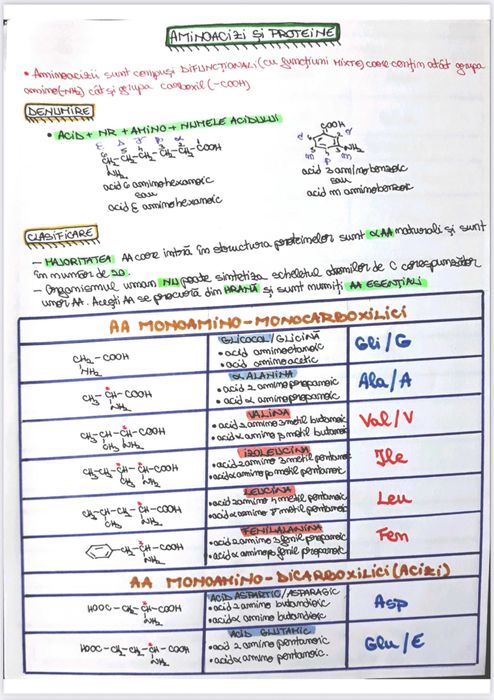 AMINOACIZI ȘI PROTEINE
• Aminoacizii sunt compuși DIFUNCȚIONALI (cu funcțiuni MIXTE) care conțin atât grupa
amino(-NH₂) cât și grupa carboxil (-COOH)
DENUMIRE
• ACID + NR + AMINO + NUMELE ACIDULUI
ε δ γ β α
6 5 4 3 2 1
CH₂-CH₂-CH₂-CH₂-CH₂-COOH
NH₂
acid 6 aminohexanoic
sau
acid ε aminohexanoic
COOH
NH₂
acid 3 aminobenzoic
sau
acid m aminobenzoic
CLASIFICARE
- MAJORITATEA AA care intră în structura proteinelor sunt α AA naturali și sunt
în număr de 20.
- Organismul uman NU poate sintetiza scheletul atomilor de C corespunzător
unor AA. Acești AA se procură din HRANĂ și sunt numiți AA ESENȚIALI
AA MONOAMINO-MONOCARBOXILICI
CH₂-COOH
NH₂
GLICOCOL/GLICINĂ
• acid aminoetanoic
• acid aminoacetic
Gli/G
CH₃-CH-COOH
NH₂
α ALANINA
• acid 2 aminopropanoic
• acid α aminopropanoic
Ala/A
CH₃-CH-CH-COOH
CH₃ NH₂
VALINA
• acid 2 amino 3 metil butanoic
• acid α amino β metil butanoic
Val/V
CH₃-CH₂-CH-CH-COOH
CH₃ NH₂
IZOLEUCINA
• acid 2 amino 3 metil pentanoic
• acid α amino β metil pentanoic
Ile
CH₃-CH-CH₂-CH-COOH
CH₃ NH₂
LEUCINA
• acid 2 amino 4 metil pentanoic
• acid α amino γ metil pentanoic
Leu
-CH₂-CH-COOH
NH₂
FENILALANINA
• acid 2 amino 3 fenil propanoic
• acid α amino β fenil propanoic
Fen
AA MONOAMINO-DICARBOXILICI (ACIZI)
HOOC-CH₂-CH-COOH
NH₂
ACID ASPARTIC/ASPARAGIC
• acid 2 amino butandioic
• acid α amino butandioic
Asp
HOOC-CH₂-CH₂-CH-COOH
NH₂
ACID GLUTAMIC
• acid 2 amino pentanoic
• acid α amino pentanoic.
Glu/E